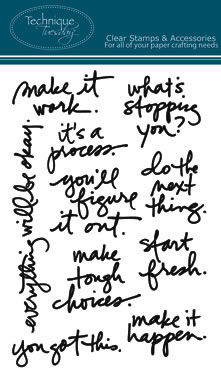 Technique
Tuesday
Clear Stamps & Accessories
For all of your paper crafting needs
make it
work.
what's
stopping
you?
it's a
process.
everything will be okay.
you'll
figure
it out.
do the
next
thing.
make
tough
choices.
start
fresh.
you got this.
make it
happen.